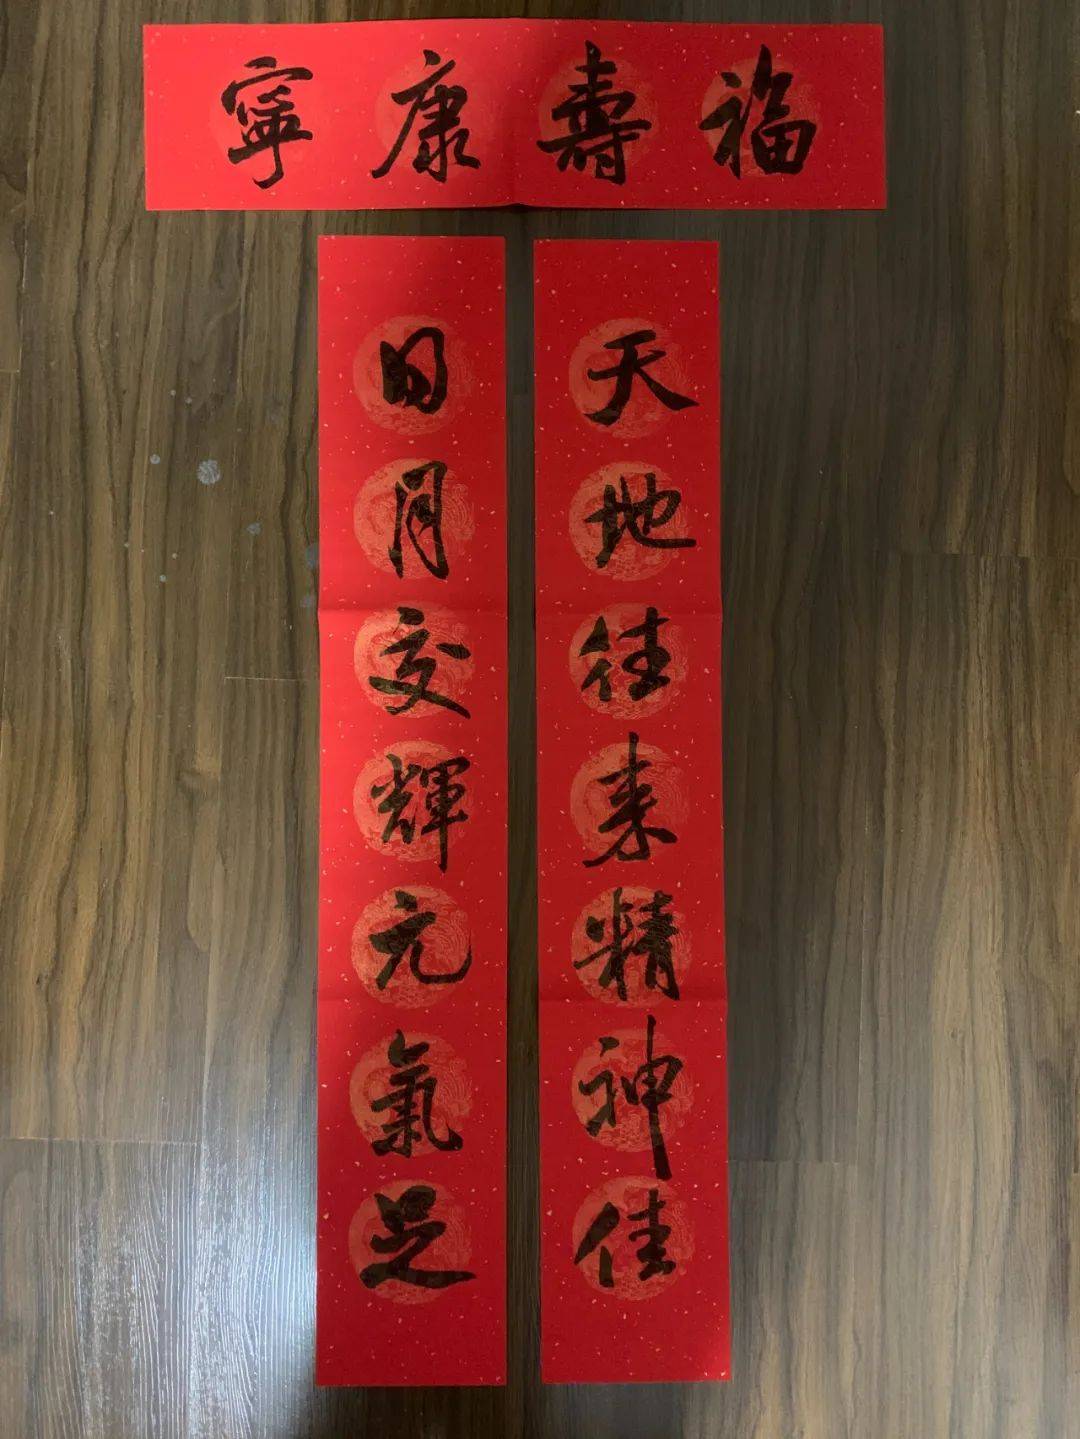 福壽康寧
天地往来精神佳
日月交輝元氣足